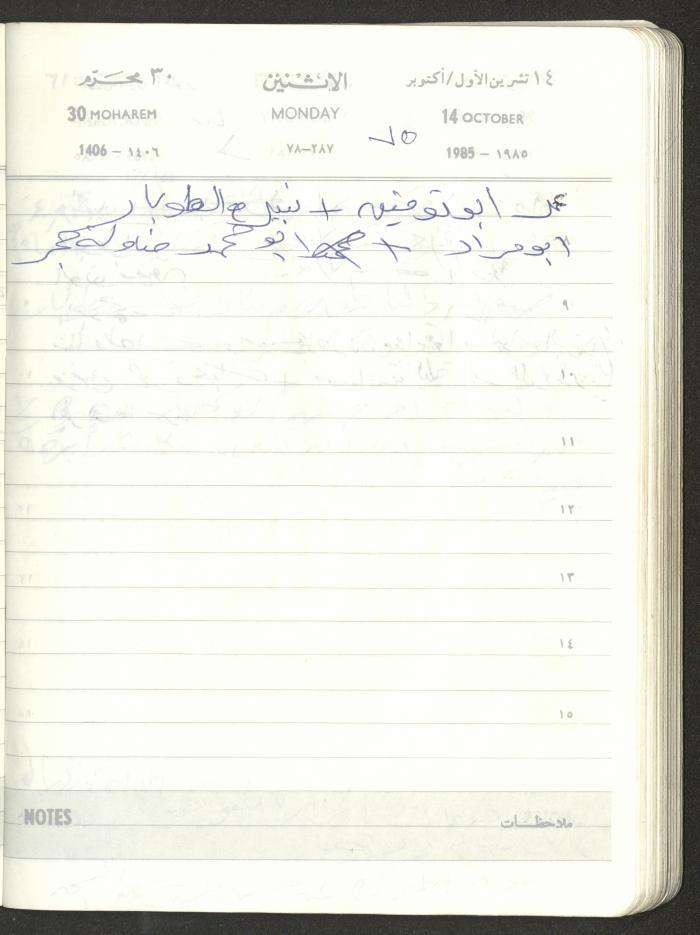 ١٤ تشرين الأول/أكتوبر الاثنين ٣٠ محرّم
30 MOHAREM MONDAY 14 OCTOBER
1406 - ١٤٠٦ ٧٨-٢٨٧ 1985 - ١٩٨٥
ابو توفيق + نبيل ع الطوبار
ابو مراد + ابو محمد مناولة حجر
٩
١٠
١١
١٢
١٣
١٤
١٥
NOTES ملاحظات